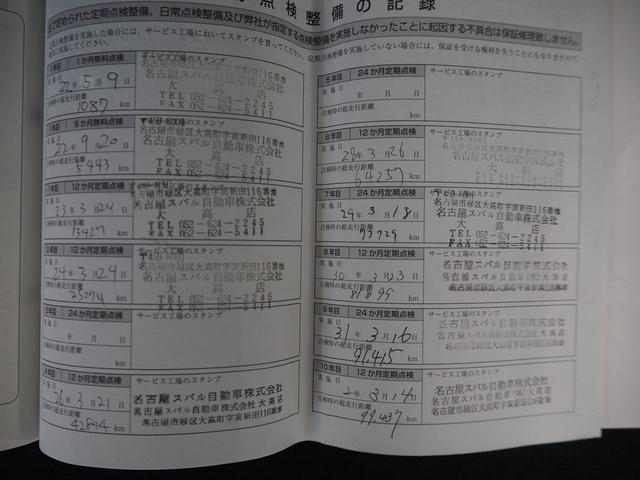 点検整備の記録
定められた定期点検整備、日常点検整備及び弊社が指定する点検整備を実施しなかったことに起因する不具合は保証修理致しません。
1か月無料点検
サービス工場のスタンプ
22年5月9日
点検時の総走行距離
1087 km
名古屋市緑区大高町字寅新田116番地
名古屋スバル自動車株式会社
大高店
TEL 052-624-2245
FAX 052-624-5411
6か月無料点検
サービス工場のスタンプ
22年9月20日
5443 km
名古屋市緑区大高町字寅新田116番地
名古屋スバル自動車株式会社
大高店
TEL 052-624-2245
FAX 052-624-5411
12か月定期点検
サービス工場のスタンプ
23年3月24日
13427 km
名古屋市緑区大高町字寅新田116番地
名古屋スバル自動車株式会社
大高店
TEL 052-624-2245
FAX 052-624-5411
2年目 12か月定期点検
サービス工場のスタンプ
24年3月24日
点検時の総走行距離
km
名古屋市緑区大高町字寅新田116番地
名古屋スバル自動車株式会社
大高店
TEL 052-624-2245
FAX 052-624-5411
24か月定期点検
サービス工場のスタンプ
年月日
点検時の総走行距離
km
12か月定期点検
サービス工場のスタンプ
26年3月21日
点検時の総走行距離
42814 km
名古屋スバル自動車株式会社
名古屋スバル自動車株式会社 大高店
名古屋市緑区大高町字寅新田116番地
5年目 24か月定期点検
サービス工場のスタンプ
実施日 年月日
点検時の総走行距離
km
6年目 12か月定期点検
サービス工場のスタンプ
実施日 28年3月26日
点検時の総走行距離
64257 km
名古屋市緑区大高町字寅新田116番地
名古屋スバル自動車株式会社
7年目 24か月定期点検
サービス工場のスタンプ
実施日 29年3月18日
点検時の総走行距離
km
名古屋市緑区大高町字寅新田116番地
名古屋スバル自動車株式会社
大高店
TEL 052-624-2245
FAX 052-624-5411
8年目 12か月定期点検
サービス工場のスタンプ
実施日 30年3月23日
点検時の総走行距離
km
名古屋スバル自動車株式会社
9年目 24か月定期点検
サービス工場のスタンプ
実施日 31年3月16日
点検時の総走行距離
91415 km
名古屋スバル自動車株式会社
10年目 12か月定期点検
サービス工場のスタンプ
実施日 2年3月14日
点検時の総走行距離
99,437 km
名古屋スバル自動車株式会社
名古屋スバル自動車(株)大高店
名古屋市緑区大高町字寅新田116番地